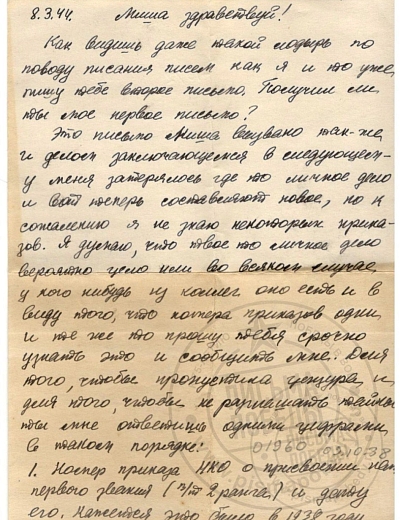 8.3.44. Миша здравствуй!
Как видишь даже такой лодырь по
поводу писания писем как я и то уже
пишу тебе второе письмо. Получил ли
ты мое первое письмо?
Это письмо Миша вызвано так-же
и делом заключающемся в следующем-
у меня затерялось где то личное дело
и вот теперь составляют новое, но к
сожалению я не знаю некоторых прика-
зов. Я думаю, что твое то личное дело
вероятно цело или во всяком случае
у кого нибудь из коллег оно есть и в
виду того, что номера приказов одни
и те же то прошу тебя срочно
узнать это и сообщить мне. Для
того, чтобы пропустила цензура и
для того, чтобы не разглашать тайны
ты мне ответишь одними цифрами
в таком порядке:
1. Номер приказа НКО о присвоении нам
первого звания (в/т 2 ранга) и дату
его. Кажется это было в 1939 году